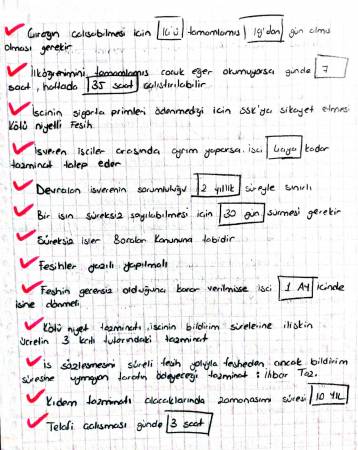 Çırağın çalışabilmesi için 14'ü tamamlamış 19'dan gün almış
olması gerekir
İlköğrenimini tamamlamış çocuk eğer okumuyorsa günde 7
saat, haftada 35 saat çalıştırılabilir.
İşcinin sigorta primleri ödenmediği için SSK'ya şikayet etmesi
Kötü niyetli Fesih
İşveren işciler arasında ayrım yaparsa işci 4 aya kadar
tazminat talep eder
Devralan işverenin sorumluluğu 2 yıllık süreyle sınırlı
Bir işin süreksiz sayılabilmesi için 30 gün sürmesi gerekir
Süreksiz işler Borçlar Kanununa tabidir
Fesihler yazılı yapılmalı
Feshin geçersiz olduğuna karar verilmişse işci 1 AY içinde
işine dönmeli
Kötü niyet tazminatı işcinin bildirim sürelerine ilişkin
ücretin 3 katı tutarındaki tazminat
iş sözleşmesini süreli fesih yoluyla fesheden ancak bildirim
süresine uymayan tarafın ödeyeceği tazminat : ihbar Taz.
Kıdem tazminatı alacaklarında zamanaşımı süresi 10 YIL
Telafi çalışması günde 3 saat